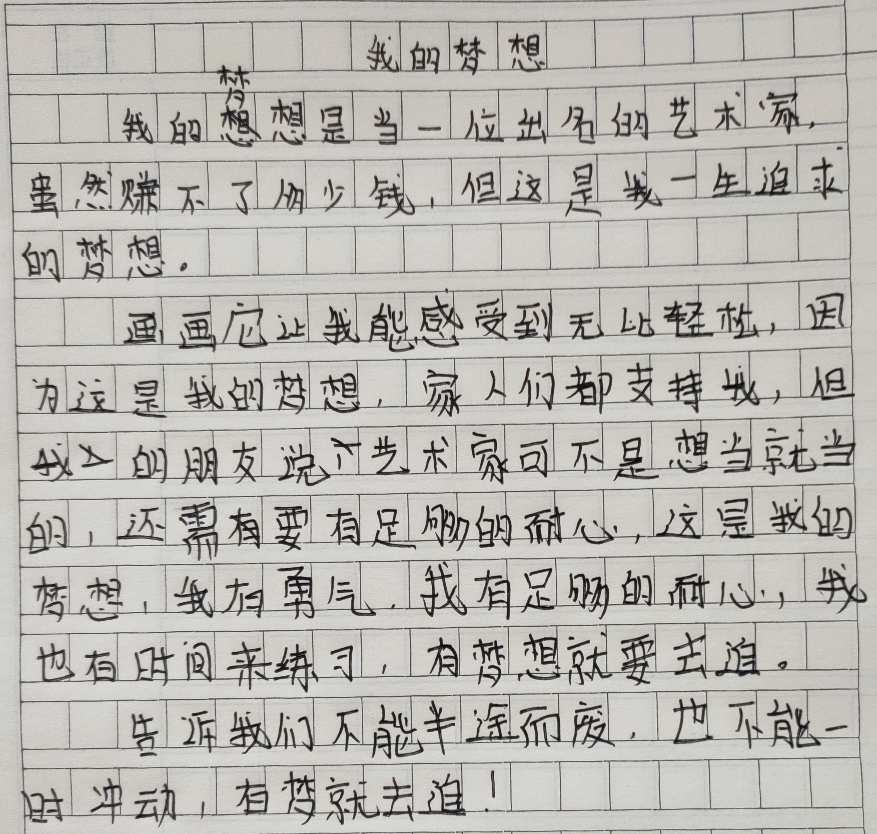 我的梦想
梦
我的想想是当一位出名的艺术家，
虽然赚不了多少钱，但这是我一生追求
的梦想。
画画它让我能感受到无比轻松，因
为这是我的梦想，家人们都支持我，但
我的朋友说艺术家可不是想当就当
的，还需有要有足够的耐心，这是我的
梦想，我有勇气，我有足够的耐心，我
也有时间来练习，有梦想就要去追。
告诉我们不能半途而废，也不能一
时冲动，有梦就去追！